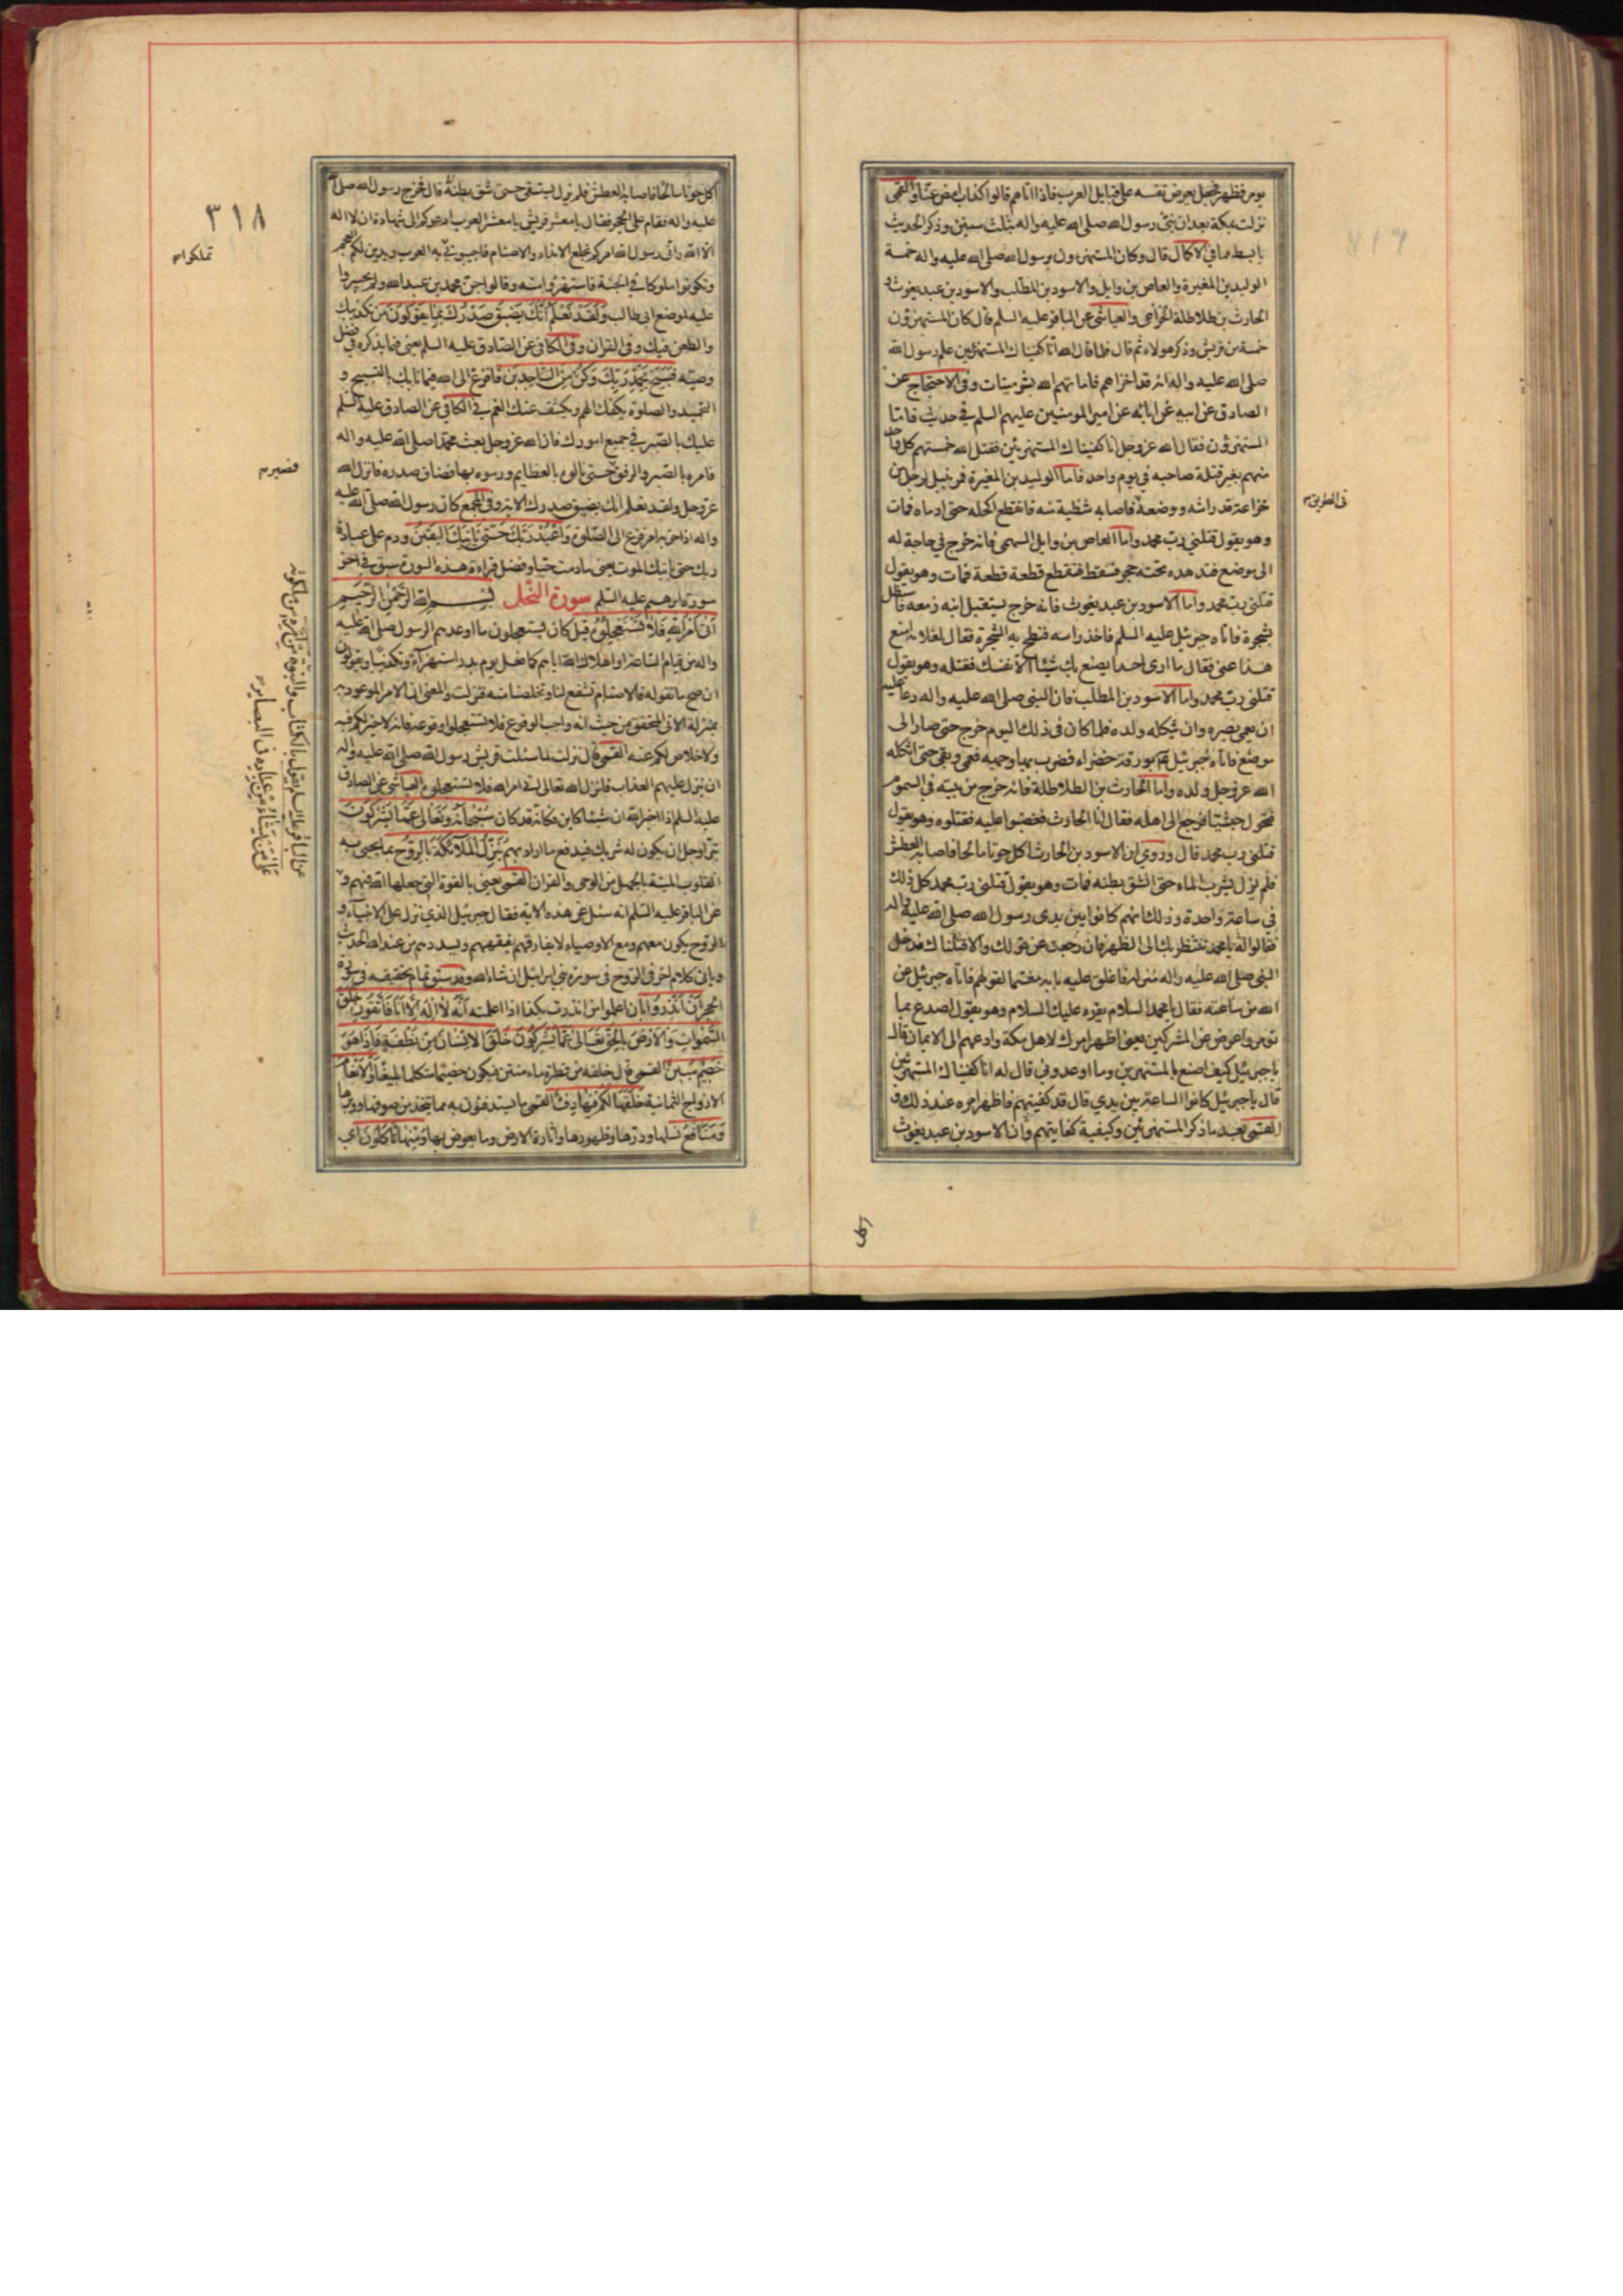 يومر فظهر فجعل يعرض نفسه على قبايل العرب فاذا اتاهم قالوا كذاب امض عنا والقمى
نزلت بمكة بعد ان نبئ رسول الله صلى الله عليه واله بثلث سنين وذكر الحديث
بابسط مما في الاكمال قال وكان المستهزءون برسول الله صلى الله عليه واله خمسة
الوليد بن المغيرة والعاص بن وايل والاسود بن المطلب والاسود بن عبد يغوث و
الحارث بن طلاطلة الخزاعى والعياشى عن الباقر عليه السلم قال كان المستهزؤن
خمسة من قريش وذكر هولاء ثم قال فلما قال الله انا كفيناك المستهزئين علم رسول الله
صلى الله عليه واله انه قد اخزاهم فاماتهم الله بشر ميتات وفى الاحتجاج عن
الصادق عن ابيه عن ابائه عن امير المومنين عليهم السلم في حديث فاما
المستهزؤن فقال الله عز وجل انا كفيناك المستهزئين فقتل الله خمستهم كل واحد
منهم بغير قتلة صاحبه في يوم واحد فاما الوليد بن المغيرة فمر بنبل لرجل من
خزاعة قد راشه ووضعه فاصابه شظية منه فانقطع اكحله حتى ادماه فمات
فى الطريق
وهو يقول قتلنى رب محمد واما العاص بن وايل السهمى فانه خرج في حاجة له
الى موضع فتدهده تحته حجر فسقط فتقطع قطعة قطعة فمات وهو يقول
قتلنى رب محمد واما الاسود بن عبد يغوث فانه خرج يستقبل ابنه زمعه فاستظل
بشجرة فاتاه جبرئيل عليه السلم فاخذ راسه فنطح به الشجرة فقال لغلامه امنع
هذا عنى فقال ما ارى احدا يصنع بك شيئا الا نفسك فقتله وهو يقول
قتلنى رب محمد واما الاسود بن المطلب فان النبى صلى الله عليه واله دعا عليه
ان يعمى بصره وان يثكله ولده فلما كان فى ذلك اليوم خرج حتى صار الى
موضع فاتاه جبرئيل بورقة خضراء فضرب بها وجهه فعمى وبقى حتى اثكله
الله عز وجل ولده واما الحارث بن الطلاطلة فانه خرج من بيته في السموم
فتحول حبشيا فرجع الى اهله فقال انا الحارث فغضبوا عليه فقتلوه وهو يقول
قتلنى رب محمد قال وروى ان الاسود بن الحارث اكل حوتا مالحا فاصابه العطش
فلم يزل يشرب الماء حتى انشق بطنه فمات وهو يقول قتلنى رب محمد كل ذلك
في ساعة واحدة وذلك انهم كانوا بين يدى رسول الله صلى الله عليه واله
فقالوا له يا محمد ننتظر بك الى الظهر فان رجعت عن قولك والا قتلناك فدخل
النبى صلى الله عليه واله منزله فاغلق عليه بابه مغتما لقولهم فاتاه جبرئيل عن
الله من ساعته فقال يا محمد السلام يقرء عليك السلام وهو يقول اصدع بما
تؤمر واعرض عن المشركين يعنى اظهر امرك لاهل مكة وادعهم الى الايمان قال
يا جبرئيل كيف اصنع بالمستهزئين وما اوعدونى قال له انا كفيناك المستهزئين
قال يا جبرئيل كانوا الساعة بين يدي قال قد كفيتهم فاظهر امره عند ذلك و
القمى بعد ما ذكر المستهزئين وكيفية كفايتهم وان الاسود بن عبد يغوث
اكل
٣١٨
اكل حوتا مالحا فاصابه العطش فلم يزل يستقى حتى شق بطنه قال فخرج رسول الله صلى الله
عليه واله فقام على الحجر فقال يا معشر قريش يا معشر العرب ادعوكم الى شهادة ان لا اله
الا الله وانى رسول الله امركم بخلع الانداد والاصنام فاجيبونى به العرب ويدين لكم العجم
تملكوا
وتكونوا ملوكا في الجنة فاستهزؤا منه وقالوا جن محمد بن عبد الله ولم يجسروا
عليه لموضع ابى طالب ولقد نعلم انك يضيق صدرك بما يقولون من تكذيبك
والطعن فيك وفى القران وفى الكافى عن الصادق عليه السلم يعنى فيما يذكره في فضل
وصيه فسبح بحمد ربك وكن من الساجدين فافزع الى الله فيما نابك بالتسبيح و
التحميد والصلوة يكفك الهم ويكشف عنك الغم في الكافى عن الصادق عليه السلم
عليك بالصبر في جميع امورك فان الله عز وجل بعث محمدا صلى الله عليه واله
فامره بالصبر والرفق حتى نالوه بالعظايم ورموه بها فضاق صدره فانزل الله
فصبر
عز وجل ولقد نعلم انك يضيق صدرك الاية وفى المجمع كان رسول الله صلى الله عليه
واله اذا حزنه امر فزع الى الصلوة واعبد ربك حتى ياتيك اليقين ودم على عبادة
ربك حتى ياتيك الموت يعنى ما دمت حيا وفضل قراءة هذه السورة سبق في اخر
سورة ابرهيم عليه السلم سورة النحل بسم الله الرحمن الرحيم
اتى امر الله فلا تستعجلوه قيل كان يستعجلون ما اوعدهم الرسول صلى الله عليه
واله من قيام الساعة او اهلاك الله اياهم كما فعل يوم بدر استهزاء وتكذيبا ويقولون
ان صح ما تقوله فالاصنام تشفع لنا وتخلصنا منه فنزلت والمعنى ان الامر الموعود به
بمنزلة الاتى المتحقق من حيث انه واجب الوقوع فلا تستعجلوا وقوعه فانه لا خير لكم فيه
ولا خلاص لكم عنه القمى قال نزلت لما سئلت قريش رسول الله صلى الله عليه واله
ان ينزل عليهم العذاب فانزل الله تعالى اتى امر الله فلا تستعجلوه العياشى عن الصادق
عليه السلم اذا اخبر الله ان شيئا كاين فكانه قد كان سبحانه وتعالى عما يشركون
تبرأ وجل ان يكون له شريك فيدفع ما اراد بهم ينزل الملائكة بالروح بما يحيى به
القلوب الميتة بالجهل من الوحى والقران القمى يعنى بالقوة التى جعلها الله فيهم و
عن الباقر عليه السلم انه سئل عن هذه الاية فقال جبرئيل الذي نزل على الانبياء و
الروح يكون معهم ومع الاوصياء لا يفارقهم يفقههم ويسددهم من عند الله الحديث
وياتى كلام اخر فى الروح في سورة بني اسرائيل ان شاء الله وقد سبق تمام تحقيقه فى سورة
الحجر ان انذروا بان اعلموا من انذرت بكذا اذا اعلمته انه لا اله الا انا فاتقون خلق
السموات والارض بالحق تعالى عما يشركون خلق الانسان من نطفة فاذا هو
خصيم مبين القمى قال خلقه من قطرة ماء منتن فيكون خصيما متكلما بليغا والانعام
الازواج الثمانية خلقها لكم فيها دفء القمى ما يستدفئون به مما يتخذ من صوفها ووبرها
ومنافع نسلها ودرها وظهورها واثارة الارض وما يعوض بها ومنها تاكلون اى
من امره من ملكوته
عن الباقر عليه السلم يقول بالكتاب والنبوة
على من يشاء من عباده في البصاير